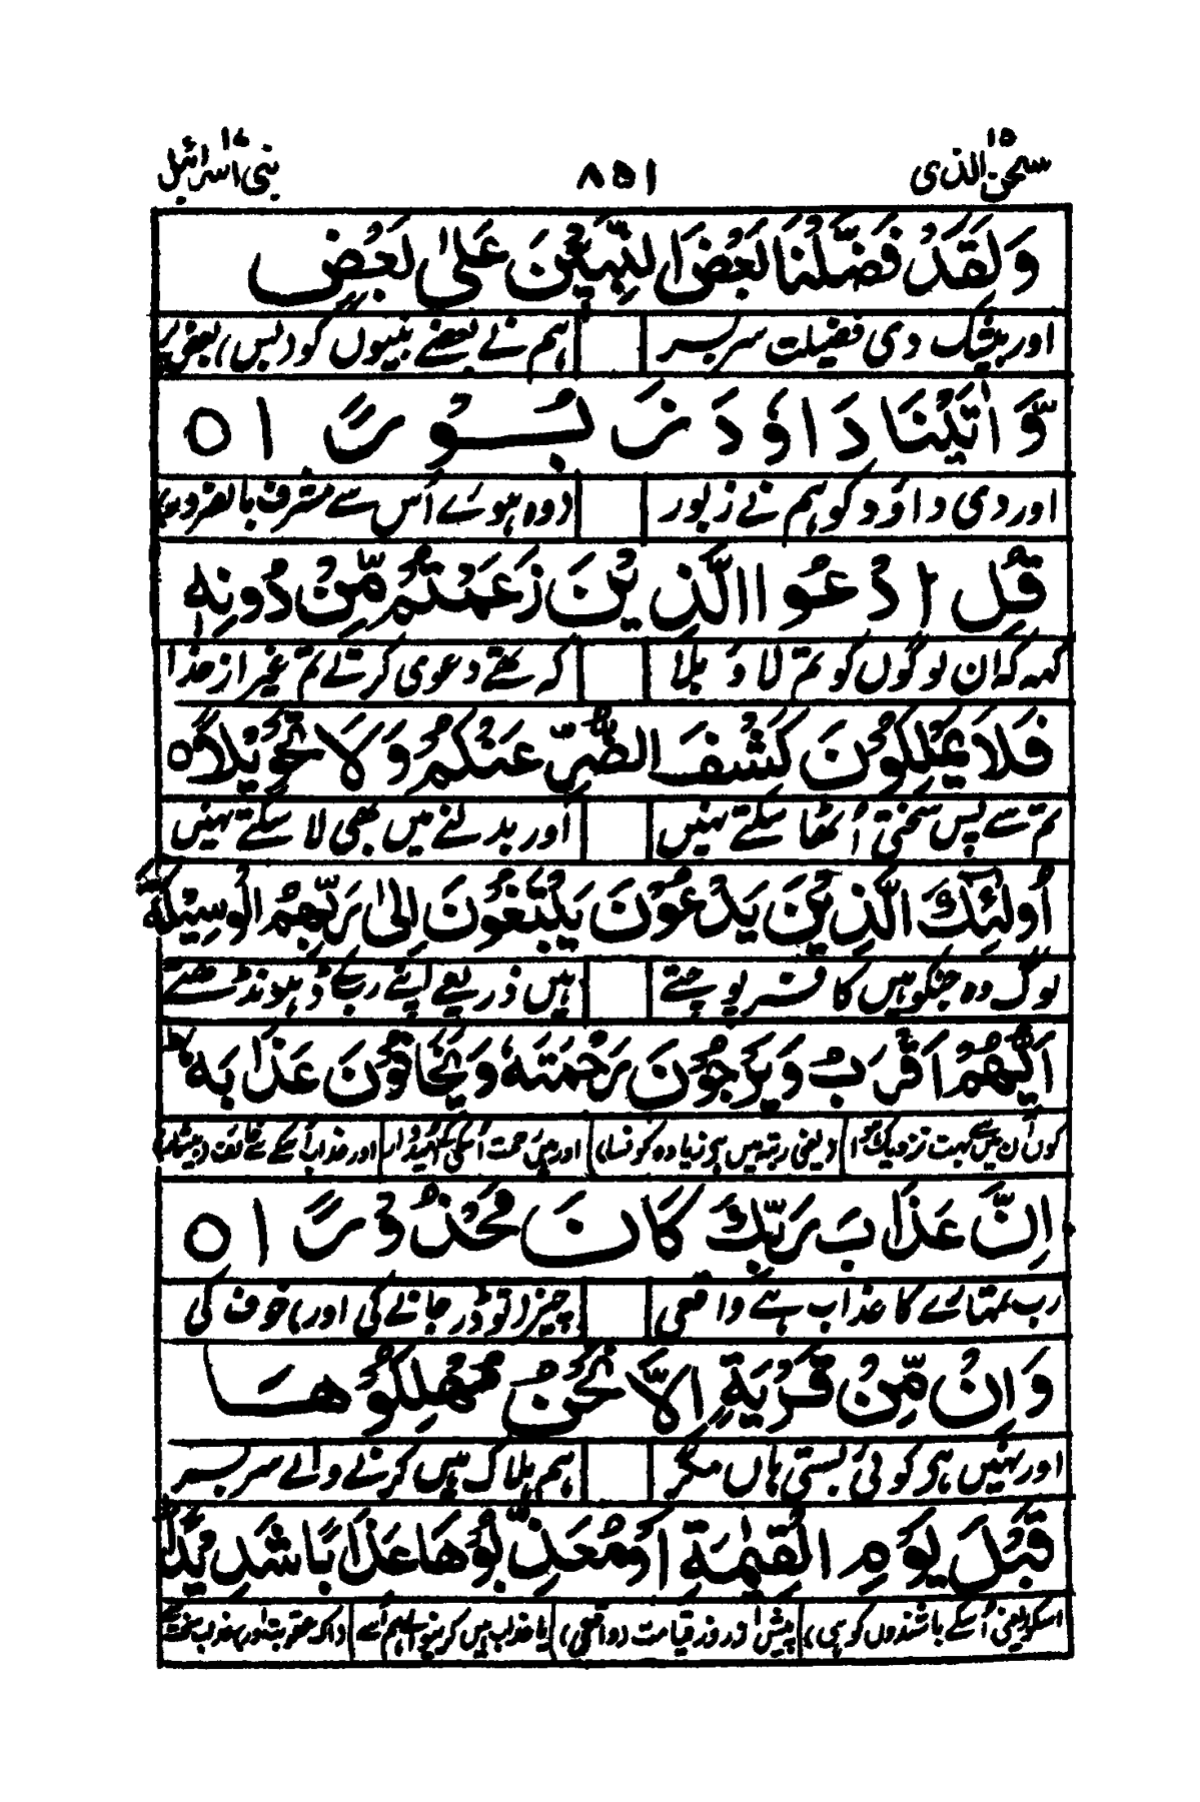 سبحٰن الذی ۱۵
۸۵۱
بنی اسرائیل ۱۷
وَلَقَدْ فَضَّلْنَا بَعْضَ النَّبِیّٖنَ عَلٰی بَعْضٍ
اور بیشک دی فضیلت سر بسر ہم نے بعضے نبیوں کو (بس) بعض پر
وَّاٰتَیْنَا دَاوٗدَ زَبُوْرًا ۵
اور دی داؤد کو ہم نے زبور (وہ ہوئے اُس سے مشرف بالضرور)
قُلِ ادْعُوا الَّذِیْنَ زَعَمْتُمْ مِّنْ دُوْنِهٖ
کہہ کہ ان لوگوں کو تم لاؤ بلا کہ تھے دعوی کرتے تم غیر از خدا
فَلَا یَمْلِكُوْنَ كَشْفَ الضُّرِّ عَنْكُمْ وَلَا تَحْوِیْلًا ۵
تم سے پس سختی اُٹھا سکتے نہیں اور بدلنے میں بھی لا سکتے نہیں
اُولٰٓئِكَ الَّذِیْنَ یَدْعُوْنَ یَبْتَغُوْنَ اِلٰی رَبِّهِمُ الْوَسِیْلَةَ
لوگ وہ جنکو ہیں کافر پوجتے ہیں ذریعے اپنے رب کے ڈھونڈھتے
اَیُّهُمْ اَقْرَبُ وَیَرْجُوْنَ رَحْمَتَهٗ وَیَخَافُوْنَ عَذَابَهٗ ط
کون اُن میں سے بہت نزدیک ہوا (یعنی رتبہ میں ہی زیادہ کونسا) اور ہیں رحمت اُسکی کے اُمیدوار اور عذاب اُسکے سے خائف (بیشمار)
اِنَّ عَذَابَ رَبِّكَ كَانَ مَحْذُوْرًا ۵
رب تمہارے کا عذاب ہے واقعی چیز (تو) ڈر جانے کی اور) خوف کی
وَاِنْ مِّنْ قَرْیَةٍ اِلَّا نَحْنُ مُهْلِكُوْهَا
اور نہیں ہی کوئی بستی ہاں مگر ہم ہلاک ہیں کرنے والے سر بسر
قَبْلَ یَوْمِ الْقِیٰمَةِ اَوْ مُعَذِّبُوْهَا عَذَابًا شَدِیْدًا
اسکو (یعنی اُسکے باشندوں کو ہی) پیش از روز قیامت (واقعی) یا عذاب ہیں کرنیوالے ہم اُسے (اک عقوبت اور) عذاب سخت سے